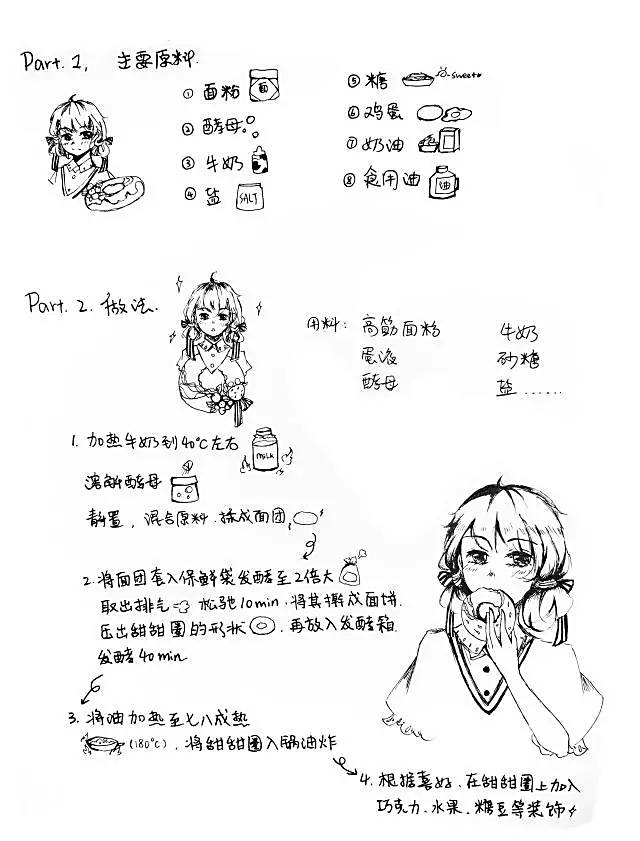 Part. 1, 主要原料.
① 面粉 面
② 酵母
③ 牛奶
④ 盐 SALT
⑤ 糖 sweet
⑥ 鸡蛋
⑦ 奶油
⑧ 食用油 油
Part. 2. 做法.
用料: 高筋面粉 牛奶
蛋液 砂糖
酵母 盐......
1. 加热牛奶到40℃左右 MILK
溶解酵母
静置, 混合原料. 揉成面团,
2. 将面团套入保鲜袋发酵至2倍大
取出排气 松驰10min. 将其擀成面饼.
压出甜甜圈的形状 . 再放入发酵箱.
发酵40min
3. 将油加热至七八成热
(180℃). 将甜甜圈入锅油炸
4. 根据喜好. 在甜甜圈上加入
巧克力. 水果. 糖豆等装饰